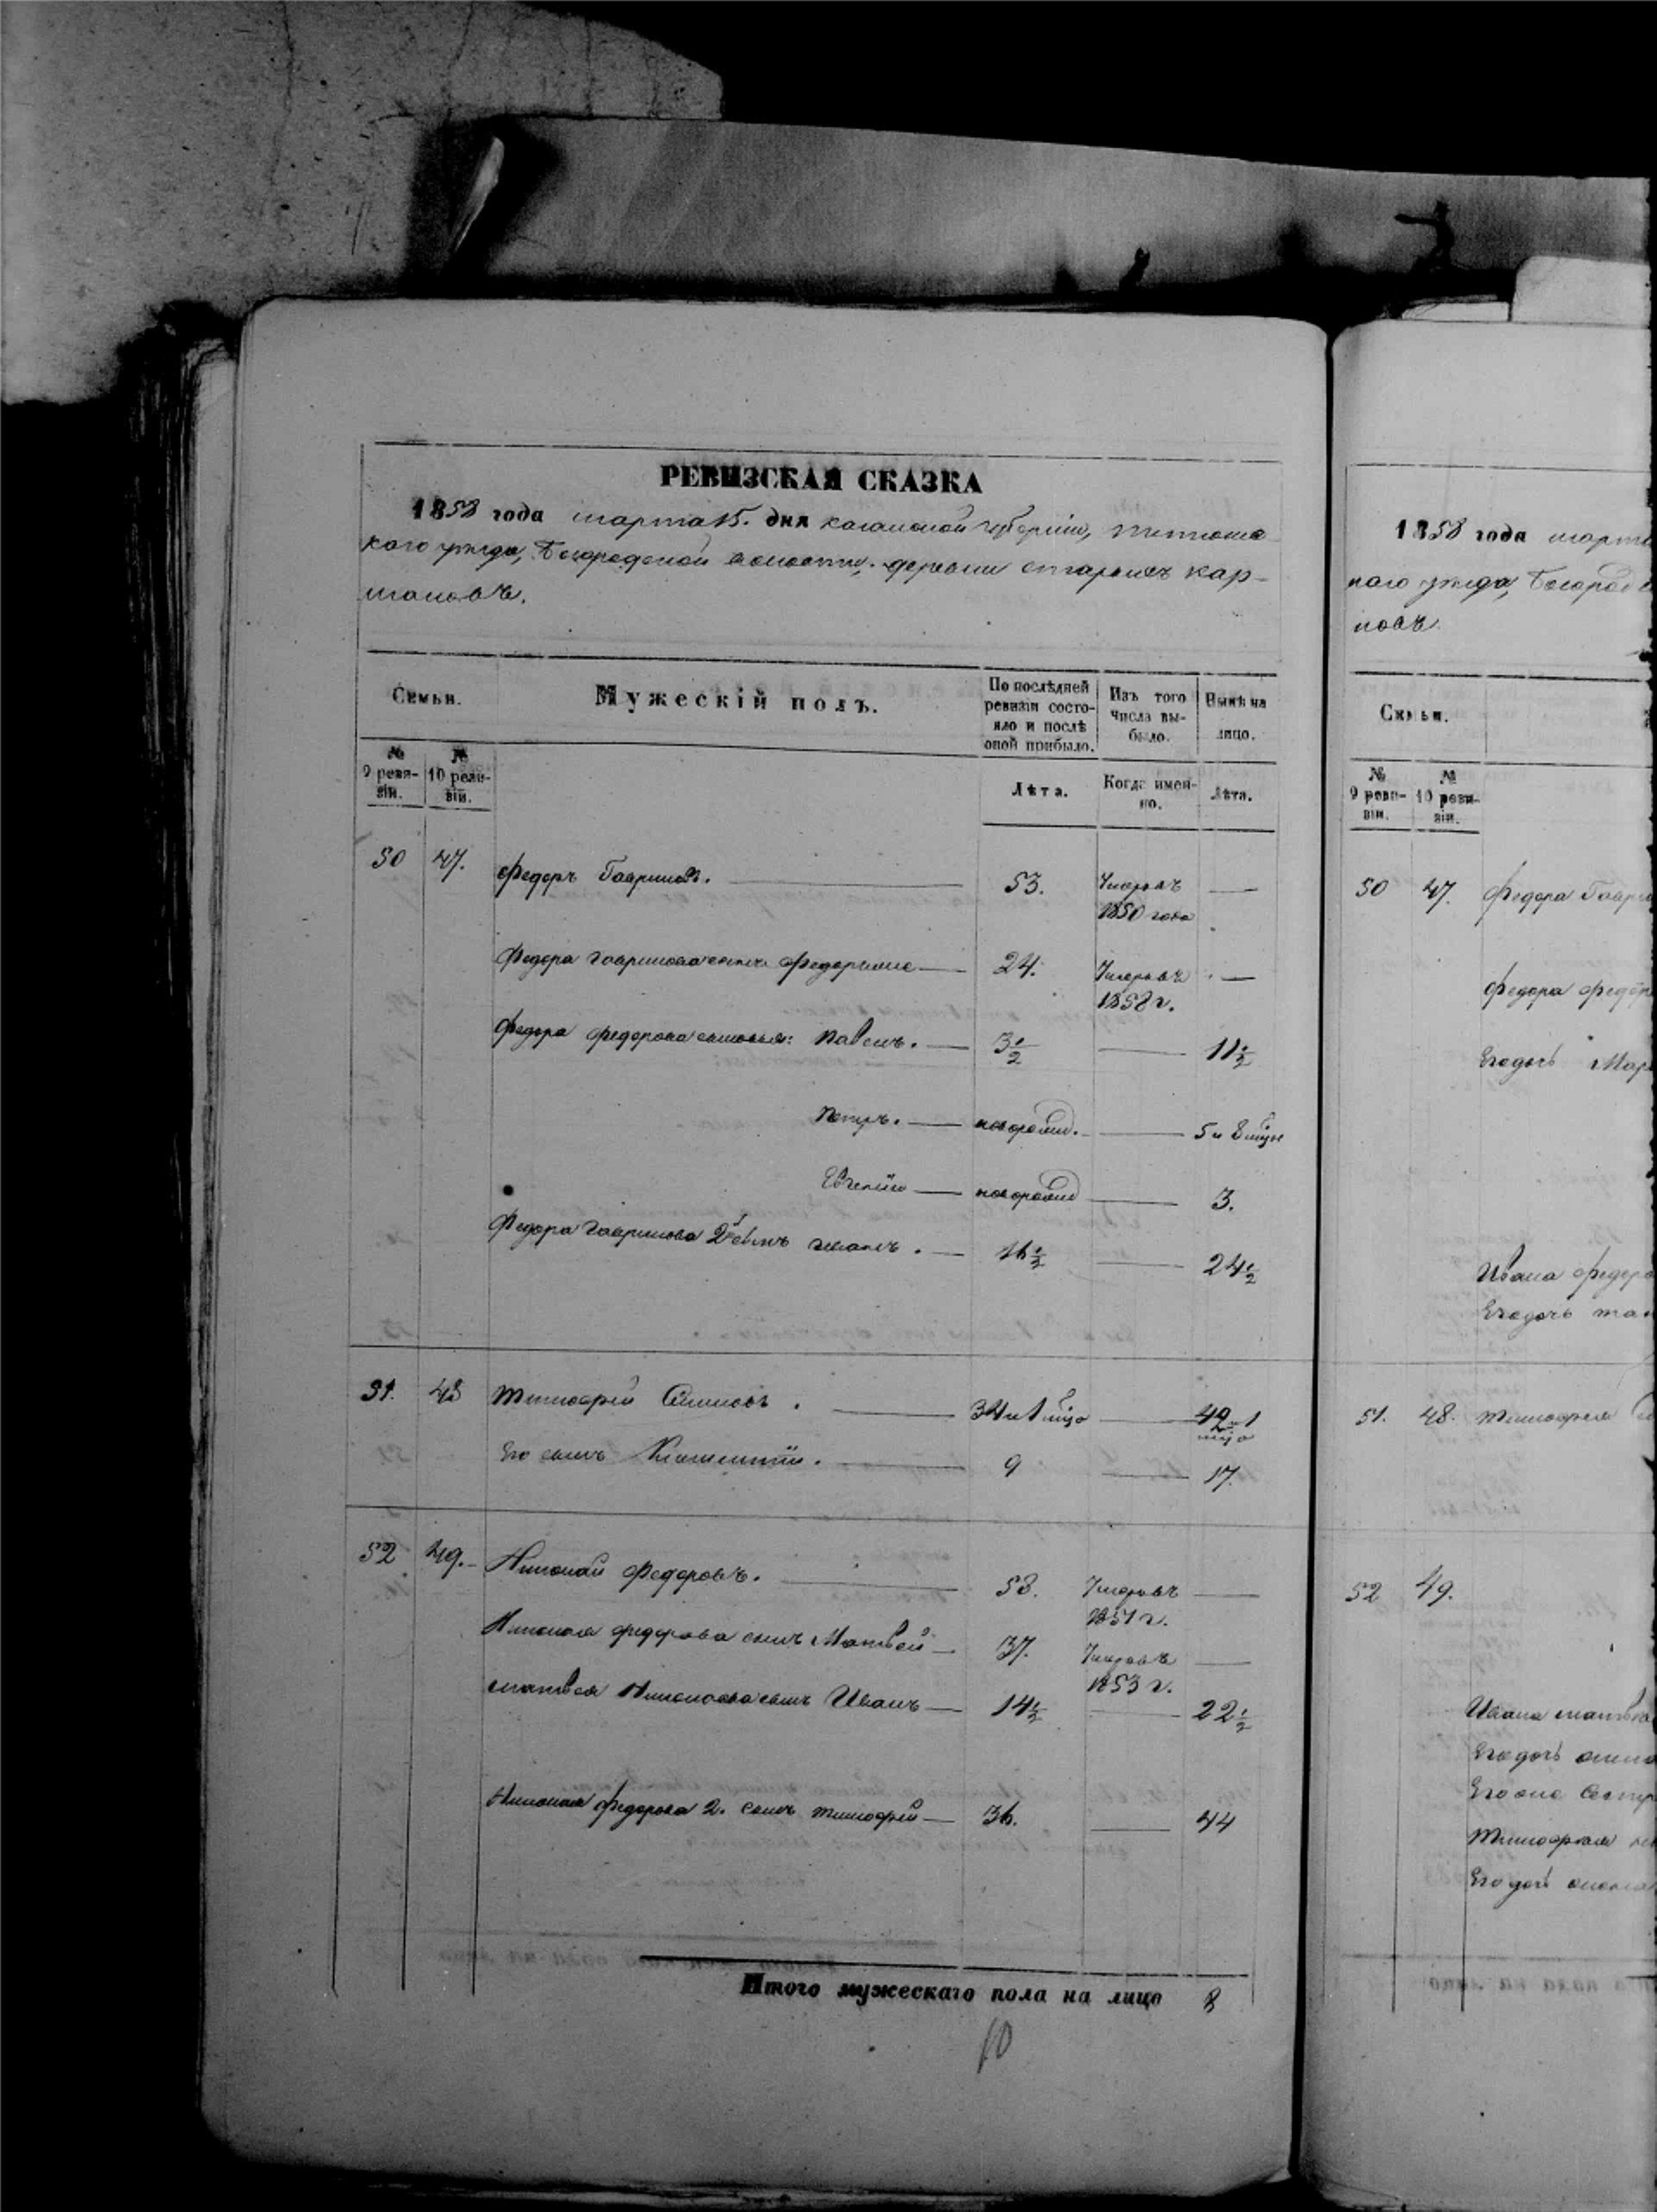 РЕВИЗСКАЯ СКАЗКА
1858 года марта 15. дня казанской губерніи, тетюшс
каго уезда, Богородской волости, деревни старыхъ кар-
Семьи.
Мужескій полъ.
По послѣдней ревизіи состо-
яло и послѣ
оной прибыло.
Изъ того
числа вы-
было.
Нынѣ на
лицо.
№
9 реви-
зіи.
№
10 реви-
зіи.
Лѣта.
Когда имен-
но.
Лѣта.
50 47. Федоръ Гавриловъ. 53. Умеръ въ
1850 года
Федора Гаврилова сынъ Федоръ 24. Умеръ въ
1858 г.
Федора Федорова сыновья: Павелъ. 3½ 11½
Петръ. новорожд. 5 и 8 мѣс
Евгеній новорожд 3.
Федора Гаврилова 2й сынъ Иванъ. 16½ 24½
51. 48 Тимофей Семеновъ. 34 и 1 мѣс 42 и 1
мѣс
Его сынъ 9 17.
52 49. Николай Федоровъ. 58. Умеръ въ
1851 г.
Николая Федорова сынъ Матвей 37. Умеръ въ
1853 г.
Матвея Николаева сынъ Иванъ 14½ 22½
Николая Федорова 2. сынъ Тимофей 36. 44
Итого мужескаго пола на лицо 8
10
1858 года марта
каго уезда, Богородс
новъ.
Семьи.
№
9 реви-
зіи.
№
10 реви-
зіи.
50 47. Федора Гаври
Федора Федор
Его дочь Мар
Ивана Федоро
Его дочь
51. 48. Тимофея
52 49.
Ивана Матвѣе
Его дочь
Его сестр
Тимофея
Его дочь